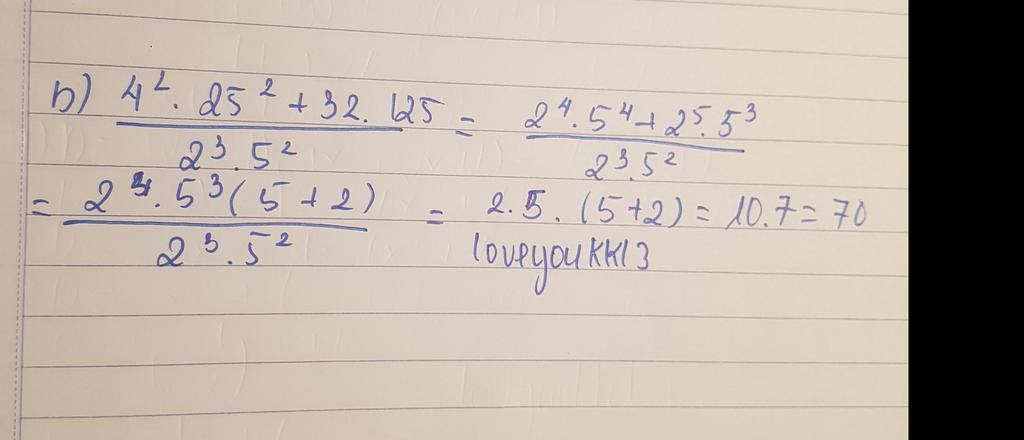 b) 4². 25² + 32. 125 / 2³. 5² = 2⁴. 5⁴ + 2⁵. 5³ / 2³. 5²
= 2⁴. 5³ (5 + 2) / 2³. 5² = 2. 5. (5+2) = 10.7 = 70
loveyouKK13